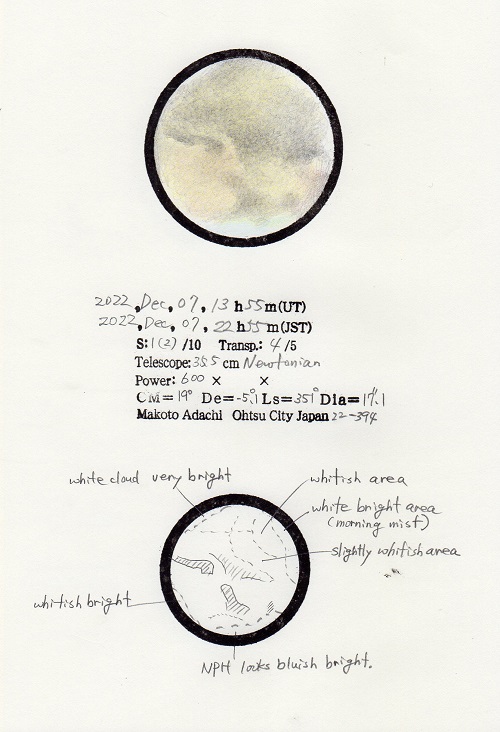 2022, Dec, 07, 13 h 55 m (UT)
2022, Dec, 07, 22 h 55 m (JST)
S: 1(2) /10 Transp.: 4 /5
Telescope: 35.5 cm Newtonian
Power: 600 × ×
CM= 19° De= -5.°1 Ls= 351° Dia= 17".1
Makoto Adachi Ohtsu City Japan 22-394
white cloud very bright
whitish area
white bright area
(morning mist)
slightly whitish area
whitish bright
NPH looks bluish bright.